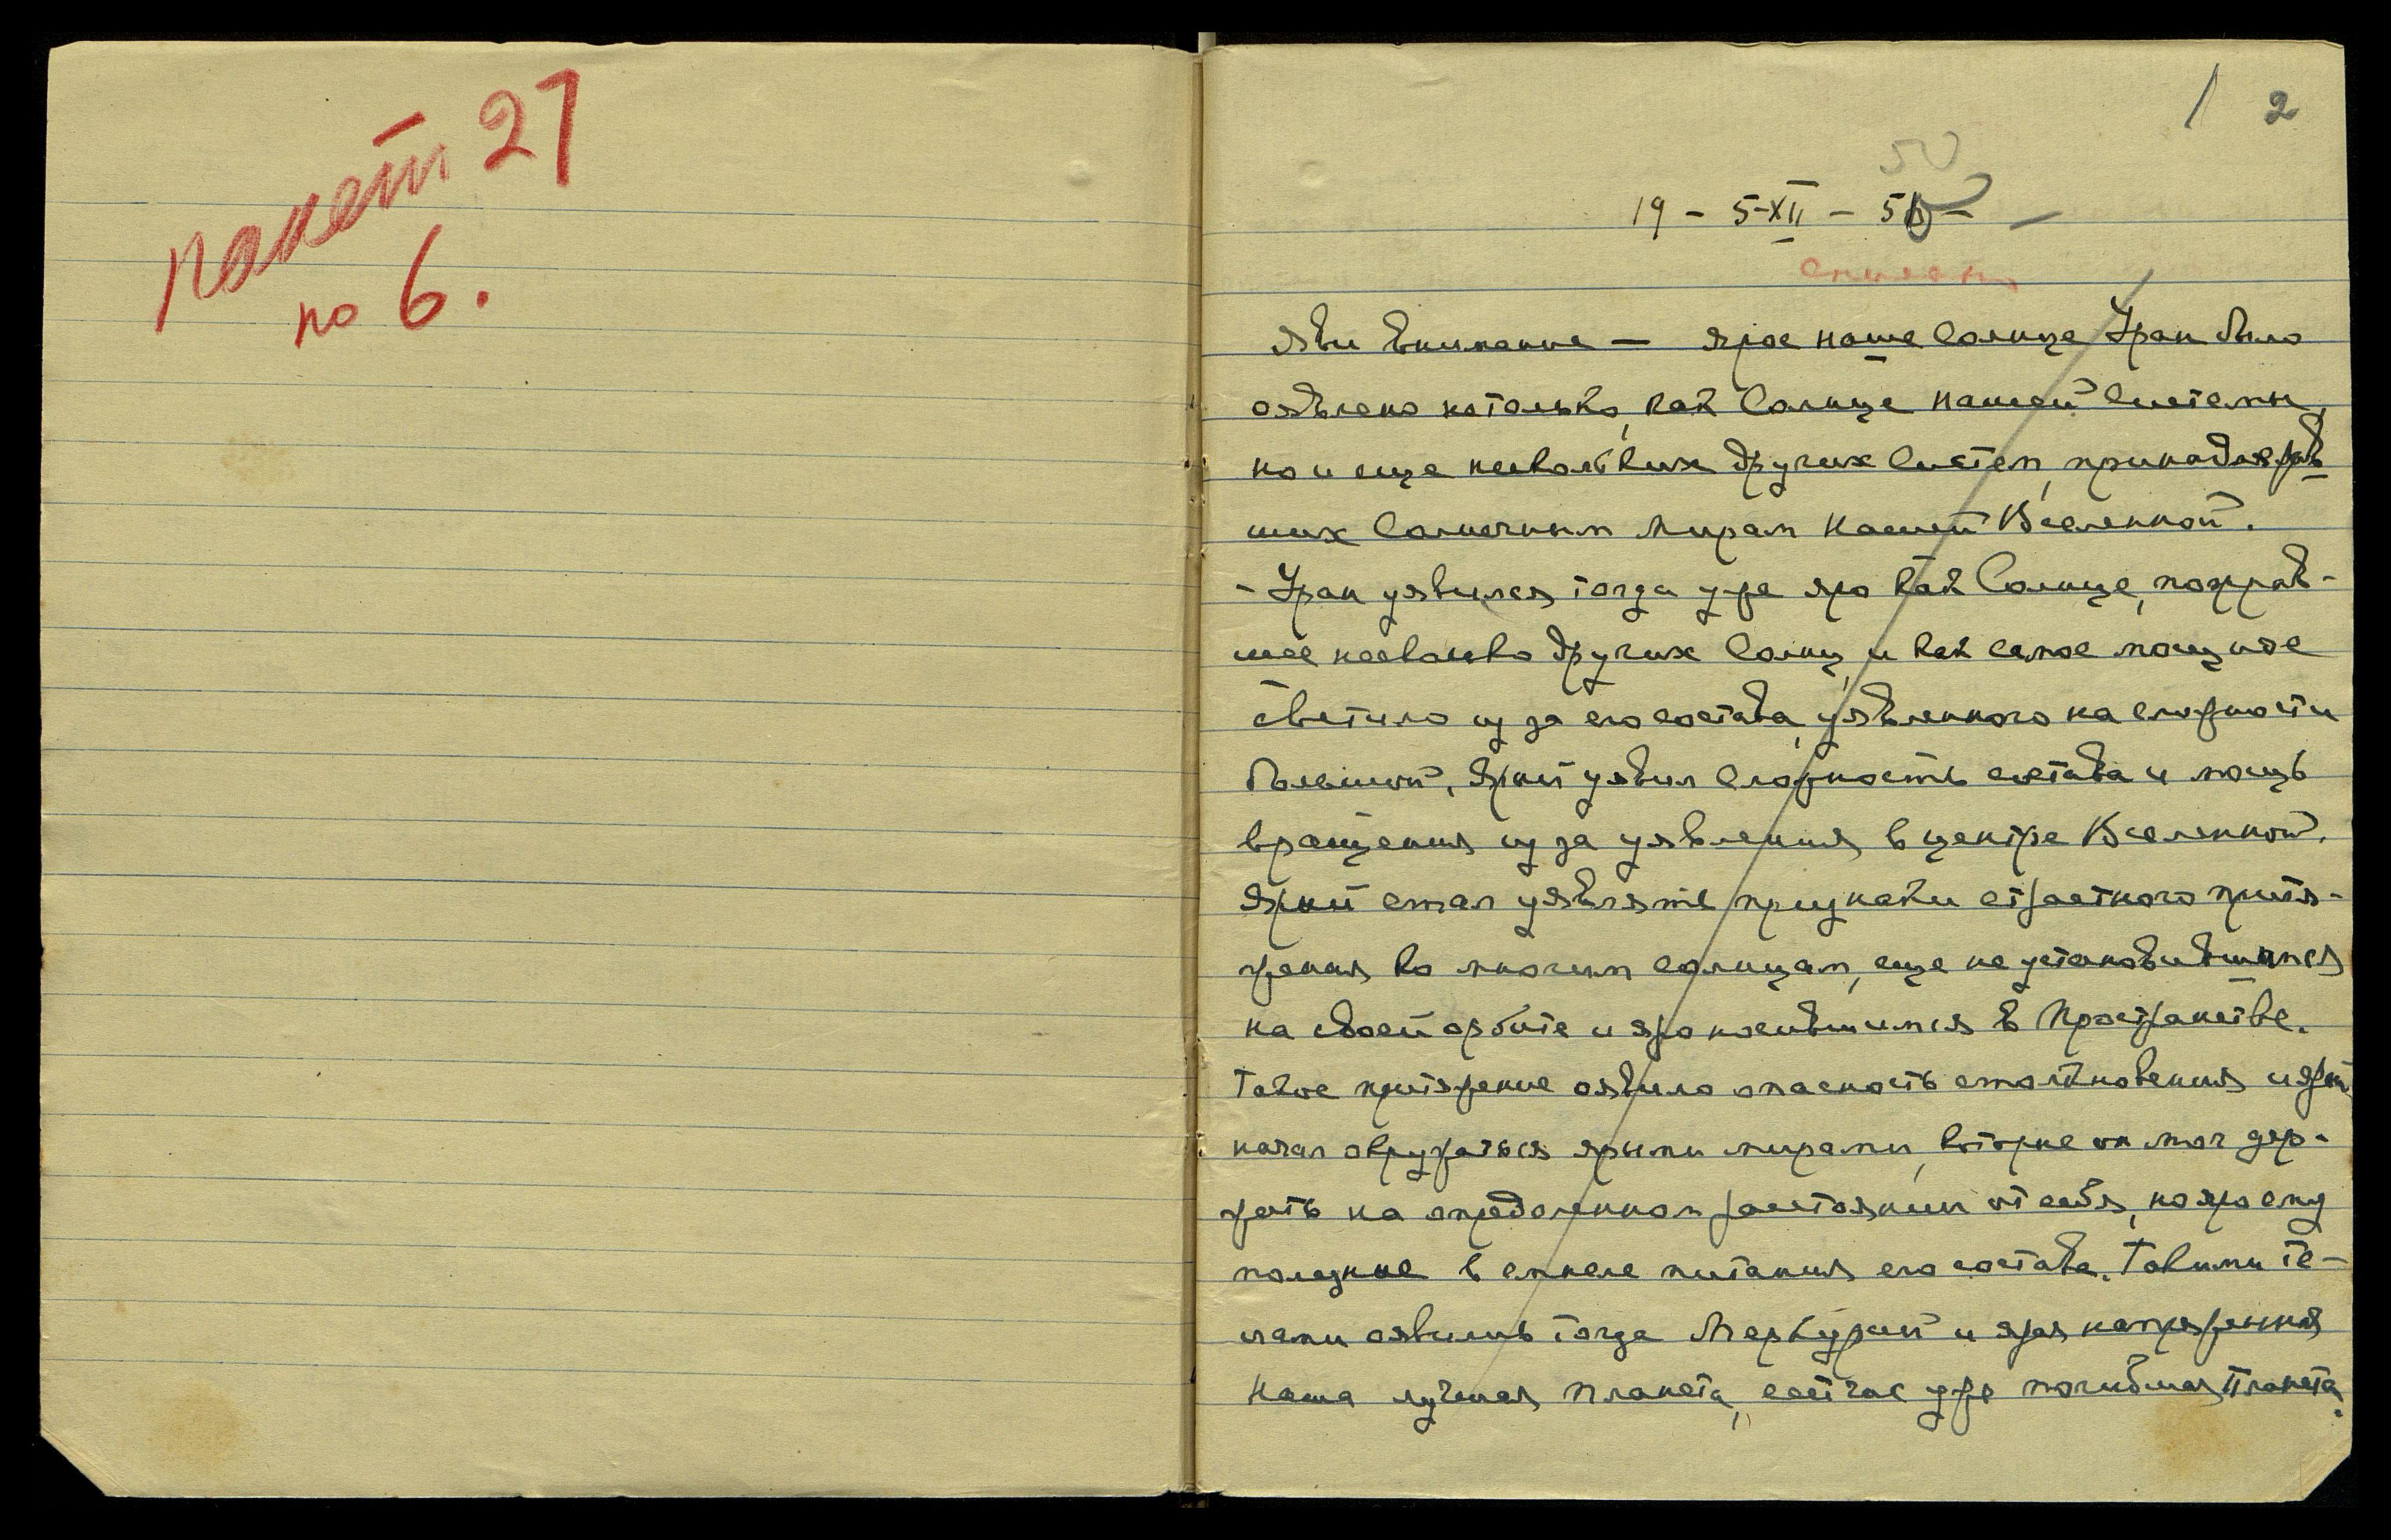 пакет 27
по 6.
1 2
50
19 - 5-XII - 50 -
Яви внимание — ярое наше Солнце Уран было
оявлено не только, как Солнце нашей системы,
но и еще нескольких других систем, принадлежав
ших Солнечным Мирам Нашей Вселенной.
- Уран уявился тогда уже яро как Солнце, пожрав-
шее несколько других Солнц, и как самое мощное
светило из за его состава, уявленного на сложности
большой. Ярый уявил сложность состава и мощь
вращения из за уявления в центре Вселенной.
Ярый стал уявлять признаки страстного притя-
жения ко многим солнцам, еще не установившимся
на своей орбите и яро носившимся в Пространстве.
Такое притяжение оявило опасность столкновения и ярый
начал окружаться ярыми мирами, которые он мог дер-
жать на определенном расстоянии от себя, но яро ему
полезные в смысле питания его состава. Такими те-
лами оявились тогда Меркурий и ярая напряженная
Наша лучшая планета, сейчас уже погибшая Планета.